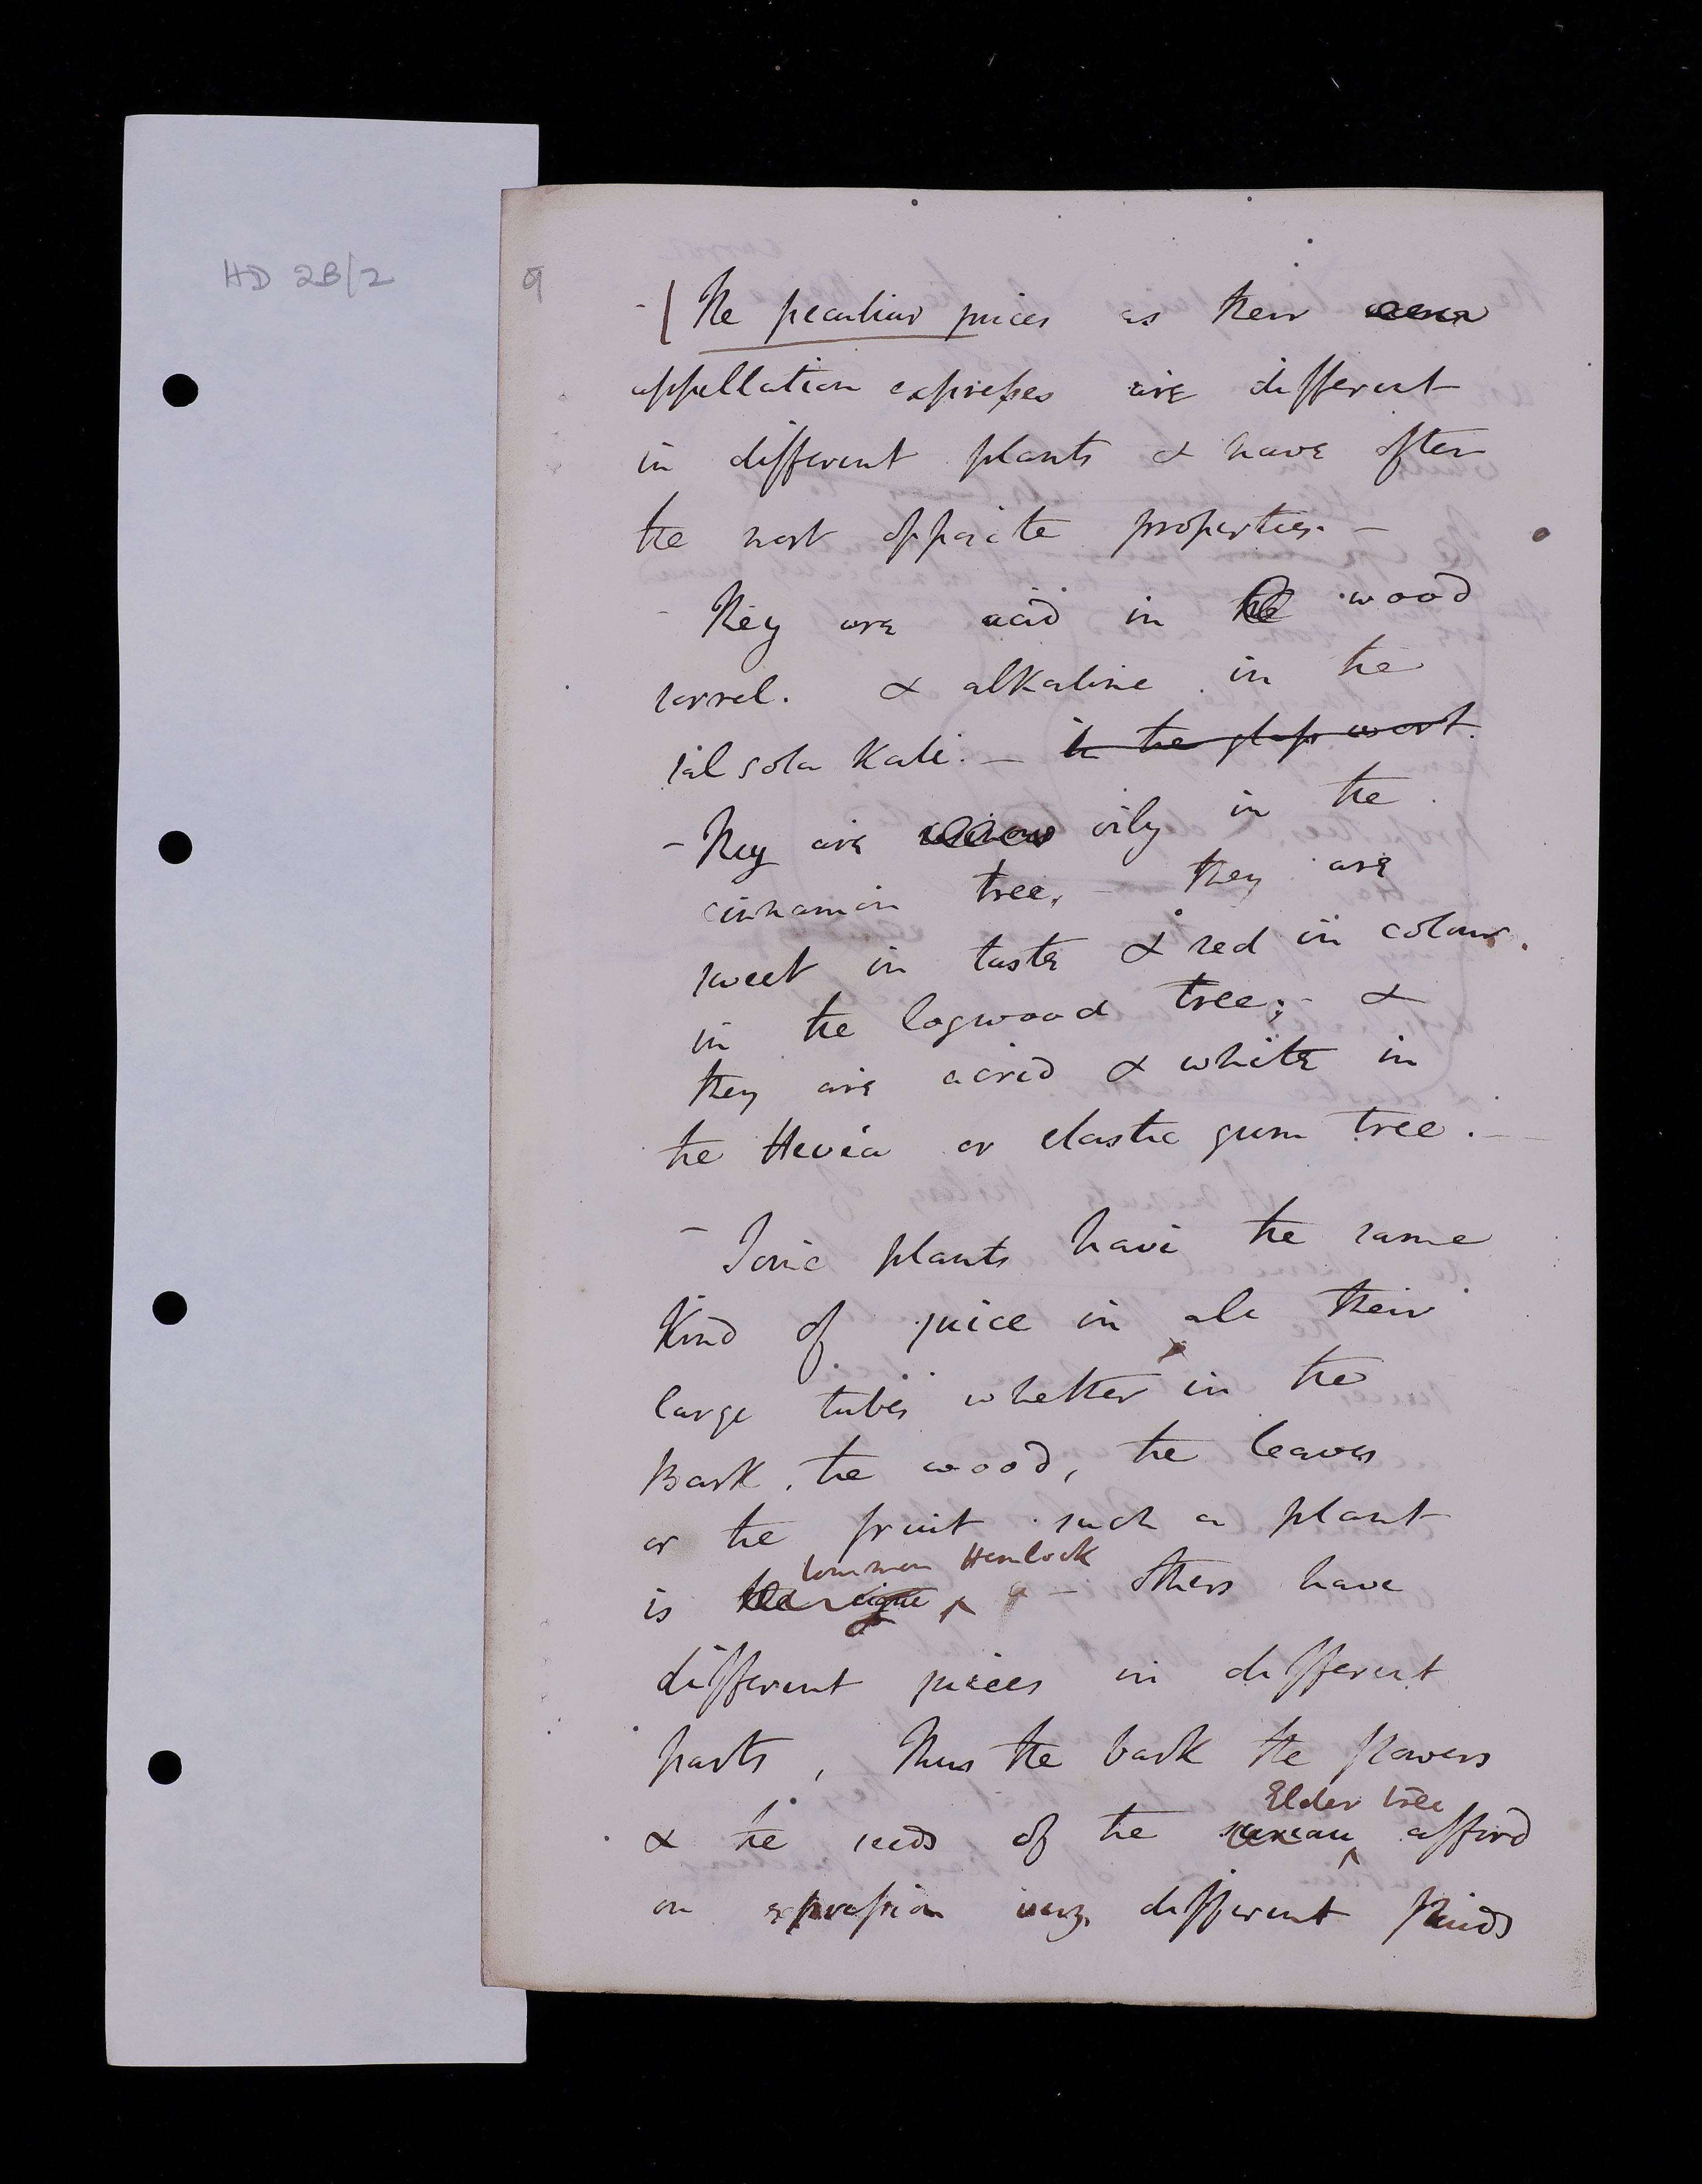 HD 2B/2
9
- ( The peculiar juices as their
appellation expresses are different
in different plants & have often
the most opposite properties. -
- They are acid in the wood
sorrel. & alkaline in the
salsola Kali. - in the glass wort.
- They are oily in the
cinnamon tree, - they are
sweet in taste & red in colour.
in the logwood tree; - &
they are acrid & white in
the Hevea or elastic gum tree. -
- Some plants have the same
Kind of juice in all their
large tubes whether in the
Bark, the wood, the leaves
or the fruit such a plant
Common Hemlock
is the cigue ^ - Others have
different juices in different
parts, Thus the bark the flowers
Elder tree
& the seeds of the sureau ^ afford
on expression very different fluids